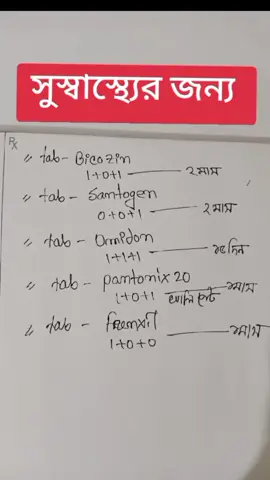 সুস্বাস্থ্যের জন্য
Rx
" tab - Bicozin
1+0+1 —— ২মাস
" tab - Santogen
0+0+1 —— ২মাস
" tab - Omidon
1+1+1 —— ১৫ দিন
" tab - pantonix 20
1+0+1 খালি পেটে
" tab -
1+0+0 ——